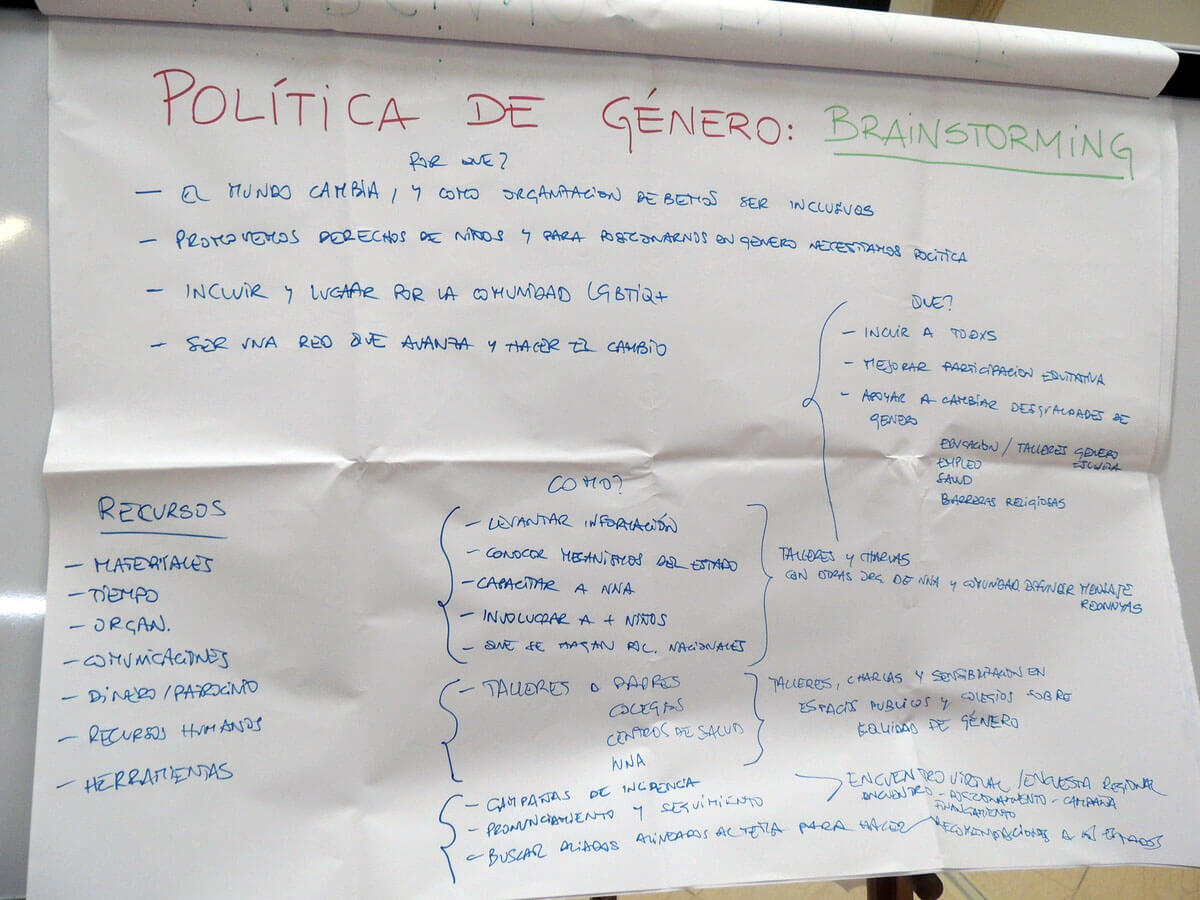 POLÍTICA DE GÉNERO: BRAINSTORMING
POR QUE?
— EL MUNDO CAMBIA, Y COMO ORGANITACION DEBEMOS SER INCLUSIVOS
— PROMOVEMOS DERECHOS DE NIÑOS Y PARA POSICIONARNOS EN GENERO NECESITAMOS POLITICA
— INCLUIR Y LUCHAR POR LA COMUNIDAD LGBTIQ+
— SER UNA RED QUE AVANZA Y HACER EL CAMBIO
QUE?
— INCLUIR A TODXS
— MEJORAR PARTICIPACION EQUITATIVA
— APOYAR A CAMBIAR DESIGUALDADES DE
GENERO
EDUCACION / TALLERES GENERO
ESCUELA
EMPLEO
SALUD
BARRERAS RELIGIOSAS
RECURSOS
— MATERIALES
— TIEMPO
— ORGAN.
— COMUNICACIONES
— DINERO/PATROCINIO
— RECURSOS HUMANOS
— HERRAMIENTAS
COMO?
— LEVANTAR INFORMACIÓN
— CONOCER MECANISMOS DEL ESTADO
— CAPACITAR A NNA
— INVOLUCRAR A + NIÑOS
— QUE SE HAGAN POL. NACIONALES
TALLERES Y CHARLAS
CON OTRAS ORG. DE NNA Y COMUNIDAD. DIFUNDIR MENSAJE
— TALLERES A PADRES
COLEGIOS
CENTROS DE SALUD
NNA
TALLERES, CHARLAS Y SENSIBILIZACION EN
ESPACIOS PUBLICOS Y COLEGIOS SOBRE
EQUIDAD DE GÉNERO
— CAMPAÑAS DE INCIDENCIA
— PRONUNCIAMIENTO Y SEGUIMIENTO
— BUSCAR ALIADOS ALINEADOS AL TEMA PARA HACER
ENCUENTRO VIRTUAL / ENCUESTA REGIONAL
ENCUENTRO - POSICIONAMIENTO - CAMPAÑA
FINANCIAMIENTO
RECOMENDACIONES A ESTADOS